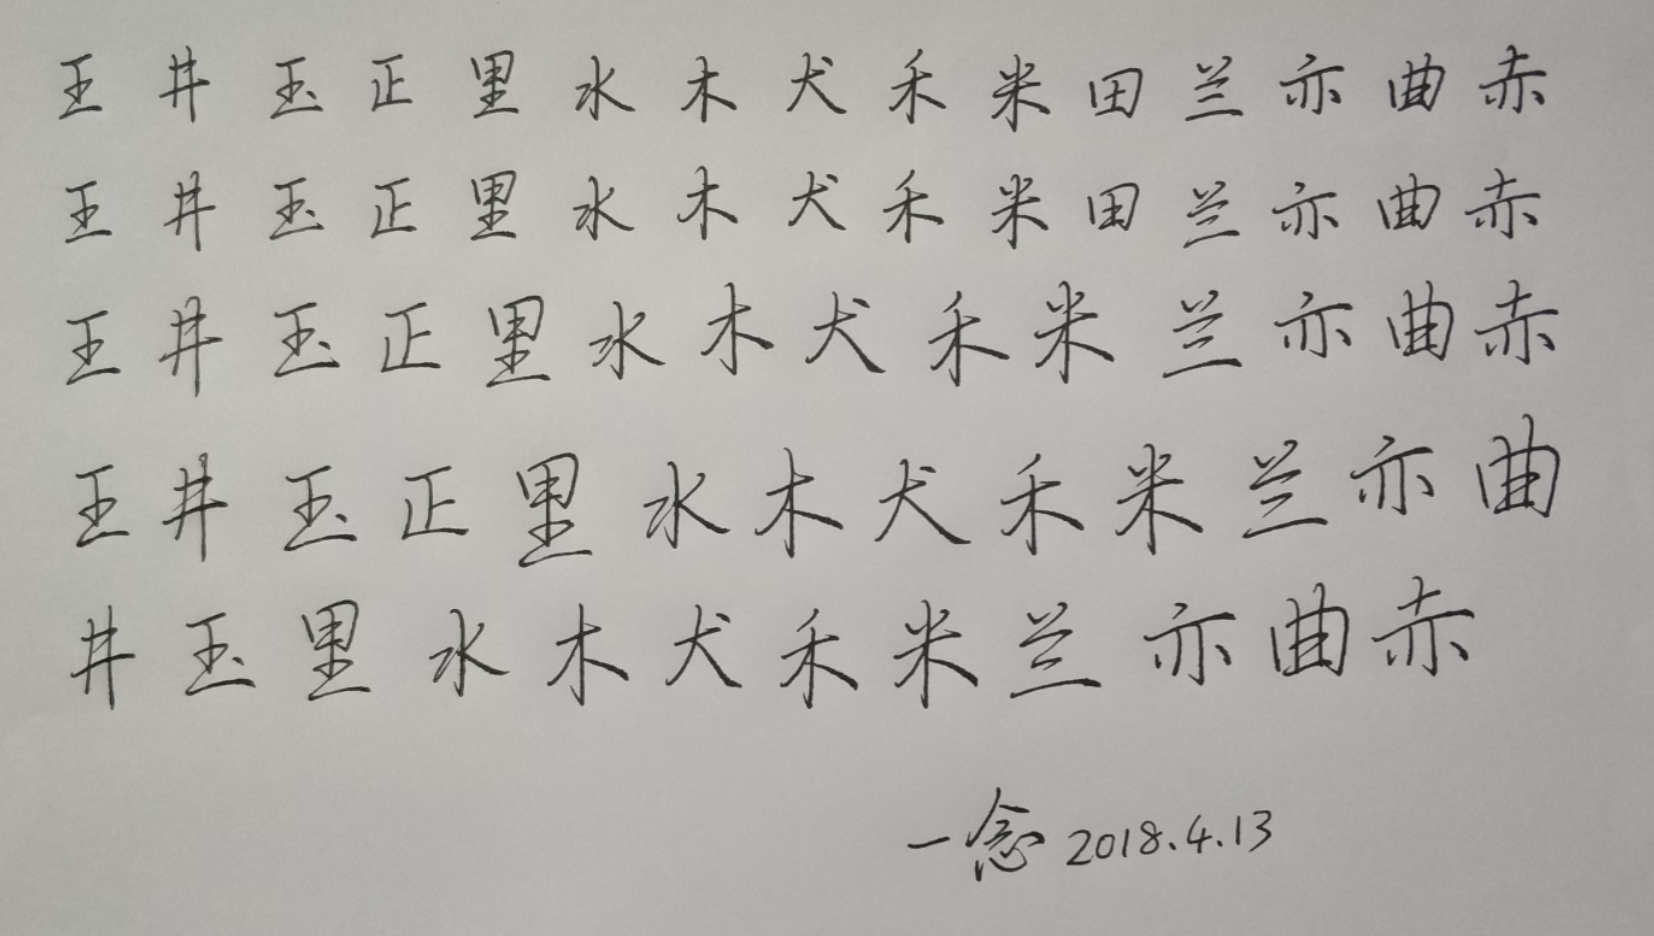 王井玉正里水木犬禾米田兰亦曲赤
王井玉正里水木犬禾米田兰亦曲赤
王井玉正里水木犬禾米兰亦曲赤
王井玉正里水木犬禾米兰亦曲
井玉里水木犬禾米兰亦曲赤
一念 2018.4.13